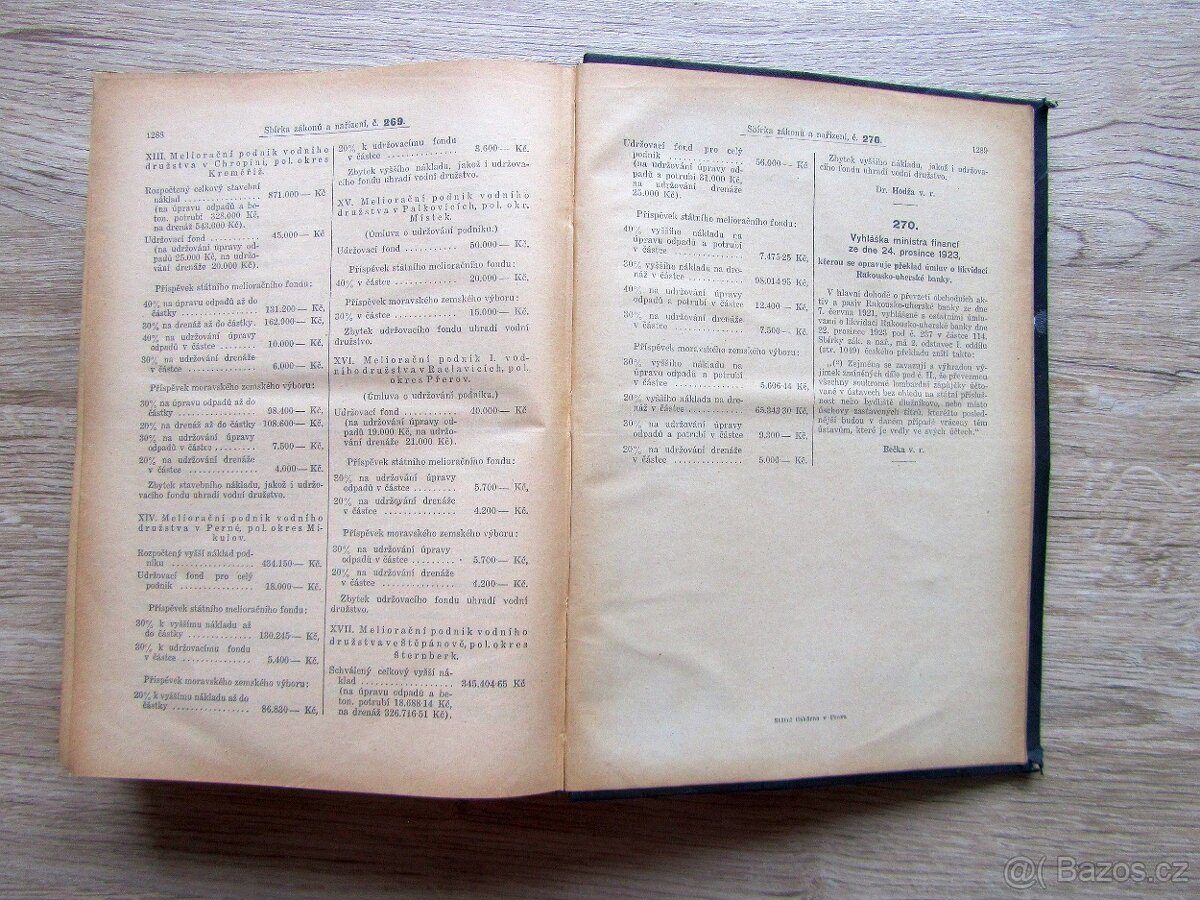 1288
Sbírka zákonů a nařízení, č. 269.
XIII. Meliorační podnik vodního
družstva v Chropíni, pol. okres
Kroměříž.
Rozpočtený celkový stavební
náklad 871.000— Kč
(na úpravu odpadů a be-
ton. potrubí 328.000 Kč,
na drenáž 543.000 Kč).
Udržovací fond 45.000— Kč
(na udržování úpravy od-
padů 25.000 Kč, na udržo-
vání drenáže 20.000 Kč).
Příspěvek státního melioračního fondu:
40% na úpravu odpadů až do
částky 131.200— Kč,
30% na drenáž až do částky 162.900— Kč,
40% na udržování úpravy
odpadů v částce 10.000— Kč,
30% na udržování drenáže
v částce 6.000— Kč,
Příspěvek moravského zemského výboru:
30% na úpravu odpadů až do
částky 98.400— Kč,
20% na drenáž až do částky 108.600— Kč,
30% na udržování úpravy
odpadů v částce 7.500— Kč,
20% na udržování drenáže
v částce 4.000— Kč.
Zbytek stavebního nákladu, jakož i udržo-
vacího fondu uhradí vodní družstvo.
XIV. Meliorační podnik vodního
družstva v Perné, pol. okres Mi-
kulov.
Rozpočtený vyšší náklad pod-
niku 434.150— Kč
Udržovací fond pro celý
podnik 18.000— Kč.
Příspěvek státního melioračního fondu:
30% k vyššímu nákladu až
do částky 130.245— Kč,
30% k udržovacímu fondu
v částce 5.400— Kč.
Příspěvek moravského zemského výboru:
20% k vyššímu nákladu až do
částky 86.830— Kč,
20% k udržovacímu fondu
v částce 3.600— Kč.
Zbytek vyššího nákladu, jakož i udržova-
cího fondu uhradí vodní družstvo.
XV. Meliorační podnik vodního
družstva v Palkovicích, pol. okr.
Místek.
(Úmluva o udržování podniku.)
Udržovací fond 50.000— Kč.
Příspěvek státního melioračního fondu:
40% v částce 20.000— Kč,
Příspěvek moravského zemského výboru:
30% v částce 15.000— Kč.
Zbytek udržovacího fondu uhradí vodní
družstvo.
XVI. Meliorační podnik I. vod-
ního družstva v Raclavicích, pol.
okres Přerov.
(Úmluva o udržování podniku.)
Udržovací fond 40.000— Kč
(na udržování úpravy od-
padů 19.000 Kč, na udržo-
vání drenáže 21.000 Kč).
Příspěvek státního melioračního fondu:
30% na udržování úpravy
odpadů v částce 5.700— Kč,
20% na udržování drenáže
v částce 4.200— Kč.
Příspěvek moravského zemského výboru:
30% na udržování úpravy
odpadů v částce 5.700— Kč,
20% na udržování drenáže
v částce 4.200— Kč.
Zbytek udržovacího fondu uhradí vodní
družstvo.
XVII. Meliorační podnik vodního
družstva ve Štěpánově, pol. okres
Šternberk.
Schválený celkový vyšší ná-
klad 345.404·65 Kč
(na úpravu odpadů a be-
ton. potrubí 18.688·14 Kč,
na drenáž 326.716·51 Kč).
Sbírka zákonů a nařízení, č. 270.
1289
Udržovací fond pro celý
podnik 56.000— Kč
(na udržování úpravy od-
padů s potrubí 31.000 Kč,
na udržování drenáže
25.000 Kč).
Příspěvek státního melioračního fondu:
40% vyššího nákladu na
úpravu odpadů a potrubí
v částce 7.475·25 Kč,
30% vyššího nákladu na dre-
náž v částce 98.014·95 Kč,
40% na udržování úpravy
odpadů a potrubí v částce 12.400— Kč,
30% na udržování drenáže
v částce 7.500— Kč.
Příspěvek moravského zemského výboru:
30% vyššího nákladu na
úpravu odpadů a potrubí
v částce 5.606·14 Kč,
20% vyššího nákladu na dre-
náž v částce 65.343·30 Kč,
30% na udržování úpravy
odpadů a potrubí v částce 9.300— Kč,
20% na udržování drenáže
v částce 5.000— Kč.
Zbytek vyššího nákladu, jakož i udržova-
cího fondu uhradí vodní družstvo.
Dr. Hodža v. r.
270.
Vyhláška ministra financí
ze dne 24. prosince 1923,
kterou se opravuje překlad úmluv o likvidaci
Rakousko-uherské banky.
V hlavní dohodě o převzetí obchodních ak-
tiv a pasiv Rakousko-uherské banky ze dne
7. června 1921, vyhlášené s ostatními úmlu-
vami o likvidaci Rakousko-uherské banky dne
22. prosince 1923 pod č. 237 v částce 114.
Sbírky zák. a nař., má 2. odstavec I. oddílu
(str. 1049) českého překladu zníti takto:
„(²) Zejména se zavazují s výhradou vý-
jimek zmíněných dále pod č. II., že převezmou
všechny soukromé lombardní zápůjčky účto-
vané v ústavech bez ohledu na státní přísluš-
nost nebo bydliště dlužníkovo, nebo místo
úschovy zastavených titrů, kteréžto posled-
nější budou v daném případě vráceny těm
ústavům, které je vedly ve svých účtech.“
Bečka v. r.
Státní tiskárna v Praze.
@( Bazos.cz